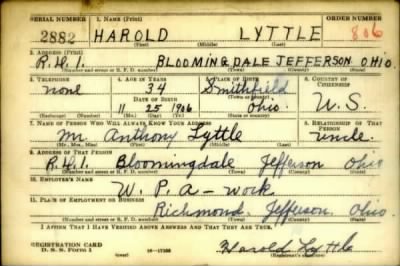 SERIAL NUMBER 1. NAME (Print) ORDER NUMBER
2882 HAROLD LYTTLE 806
(First) (Middle) (Last)
2. ADDRESS (Print)
R.D.1. BLOOMINGDALE JEFFERSON OHIO.
(Number and street or R. F. D. number) (Town) (County) (State)
3. TELEPHONE 4. AGE IN YEARS 5. PLACE OF BIRTH 6. COUNTRY OF CITIZENSHIP
None 34 Smithfield
DATE OF BIRTH (Town or county)
11 25 1906 Ohio. U.S.
(Mo.) (Day) (Yr.) (State or country)
7. NAME OF PERSON WHO WILL ALWAYS KNOW YOUR ADDRESS 8. RELATIONSHIP OF THAT PERSON
Mr. Anthony Lyttle uncle.
(Mr., Mrs., Miss) (First) (Middle) (Last)
9. ADDRESS OF THAT PERSON
R.D.1. Bloomingdale Jefferson Ohio
(Number and street or R. F. D. number) (Town) (County) (State)
10. EMPLOYER'S NAME
W. P. A - Work
11. PLACE OF EMPLOYMENT OR BUSINESS
Richmond. Jefferson. Ohio.
(Number and street or R. F. D. number) (Town) (County) (State)
I AFFIRM THAT I HAVE VERIFIED ABOVE ANSWERS AND THAT THEY ARE TRUE.
REGISTRATION CARD
D. S. S. Form 1 Harold Lyttle
(over) (Registrant's signature)